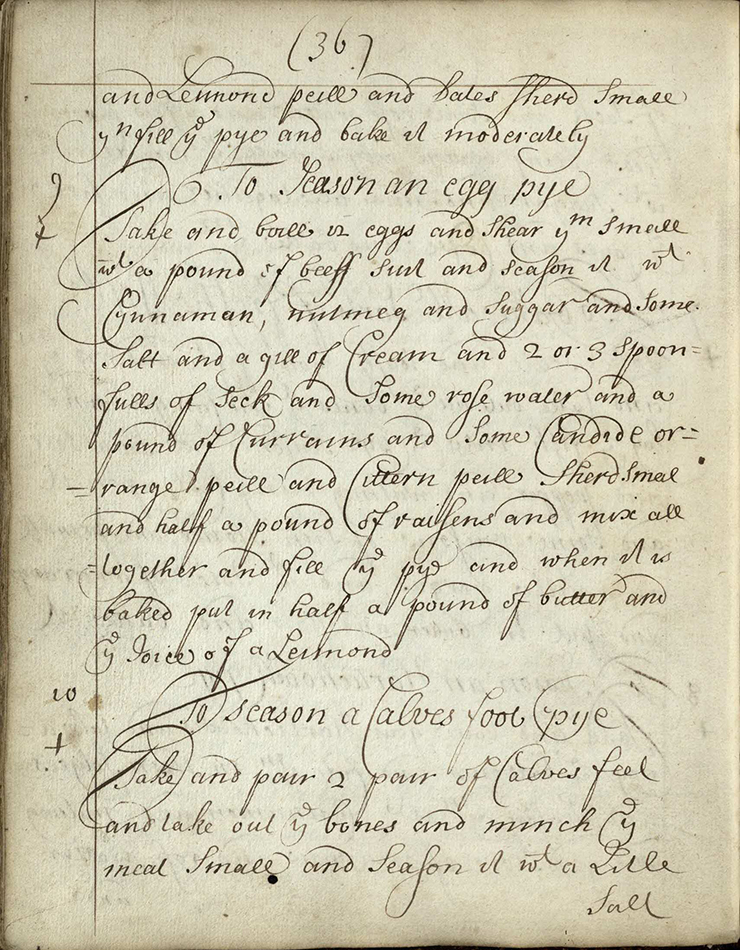 (36)
and Lemmond peill and dates sherd small
yn fill ye pye and bake it moderately
9 To Season an egg pye
+ Take and boill 12 eggs and shear ym small
wt a pound of beeff suit and season it wt
Cynnaman, nutmeg and suggar and some
salt and a gill of Cream and 2 or 3 spoon=
fulls of seck and some rose water and a
pound of Currains and some Candide or=
=range peill and Cittern peill sherd smal
and half a pound of raisens and mix all
=together and fill ye pye and when it is
baked put in half a pound of butter and
ye Joice of a Lemmond
10 To season a Calves foot pye
+ Take and pair 2 pair of Calves feet
and take out ye bones and minch ye
meat small and season it wt a Little
salt